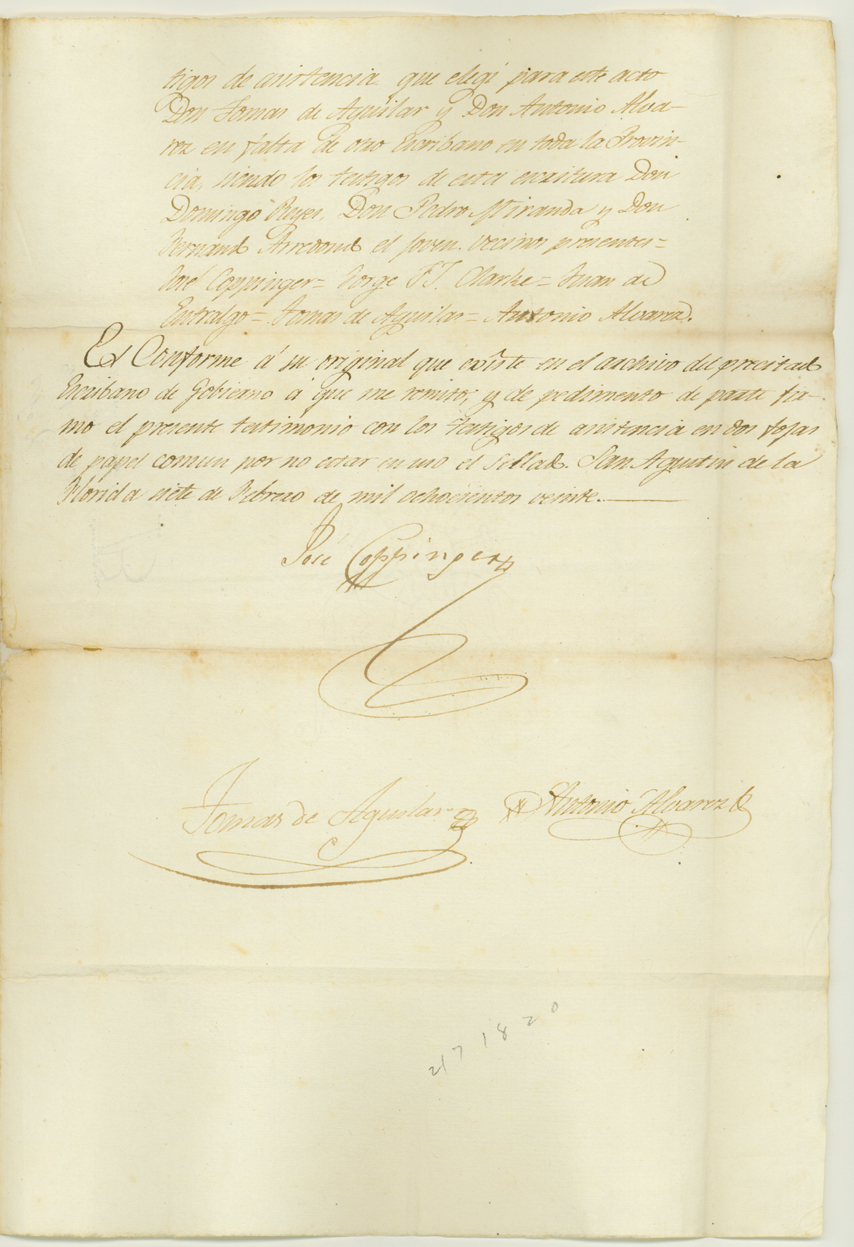 tigos de asistencia que elegí para este acto
Don Tomas de Aguilar y Don Antonio Alva-
rez en falta de otro Escribano en toda la Provin-
cia, siendo los testigos de esta escritura Don
Domingo Reyes, Don Pedro Miranda y Don
Fernando Arredondo el Joven vecinos presentes=
José Coppinger= Jorge J. F. Clarke= Juan de
Entralgo= Tomas de Aguilar= Antonio Alvarez.
Es Conforme á su original que existe en el archivo del precitado
Escribano de Gobierno á que me remito, y de pedimento de parte fir-
mo el presente testimonio con los testigos de asistencia en dos fojas
de papel comun por no estar en uso el Sellado. San Agustin de la
Florida siete de Febrero de mil ochocientos veinte.
José Coppinger
Tomas de Aguilar Antonio Alvarez
2/7 1820